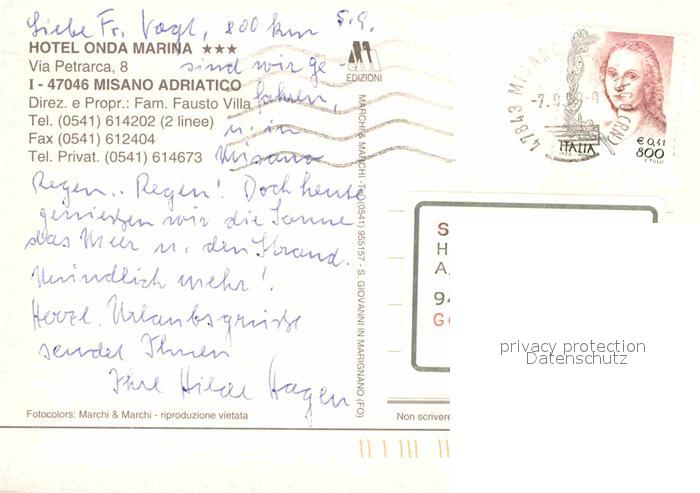 Liebe Fr. Vogl, 800 km 5.9.
HOTEL ONDA MARINA ★★★
Via Petrarca, 8
sind wir ge-
I - 47046 MISANO ADRIATICO
fahren,
Direz. e Propr.: Fam. Fausto Villa
Tel. (0541) 614202 (2 linee)
Fax (0541) 612404
u. in
Tel. Privat. (0541) 614673
Misano
Regen.. Regen! Doch heute
genießen wir die Sonne
das Meer u. den Strand.
Mündlich mehr!
Herzl. Urlaubsgrüße
sendet Ihnen
Ihre Hilde Hagen
Fotocolors: Marchi & Marchi - riproduzione vietata
EDIZIONI
MARCHI & MARCHI - Tel. (0541) 955157 - S. GIOVANNI IN MARIGNANO (FO)
47843 MISANO
(RN)
ITALIA
€ 0,41
800
T. TULLI
S
H
A
94
G
privacy protection
Datenschutz
Non scrivere